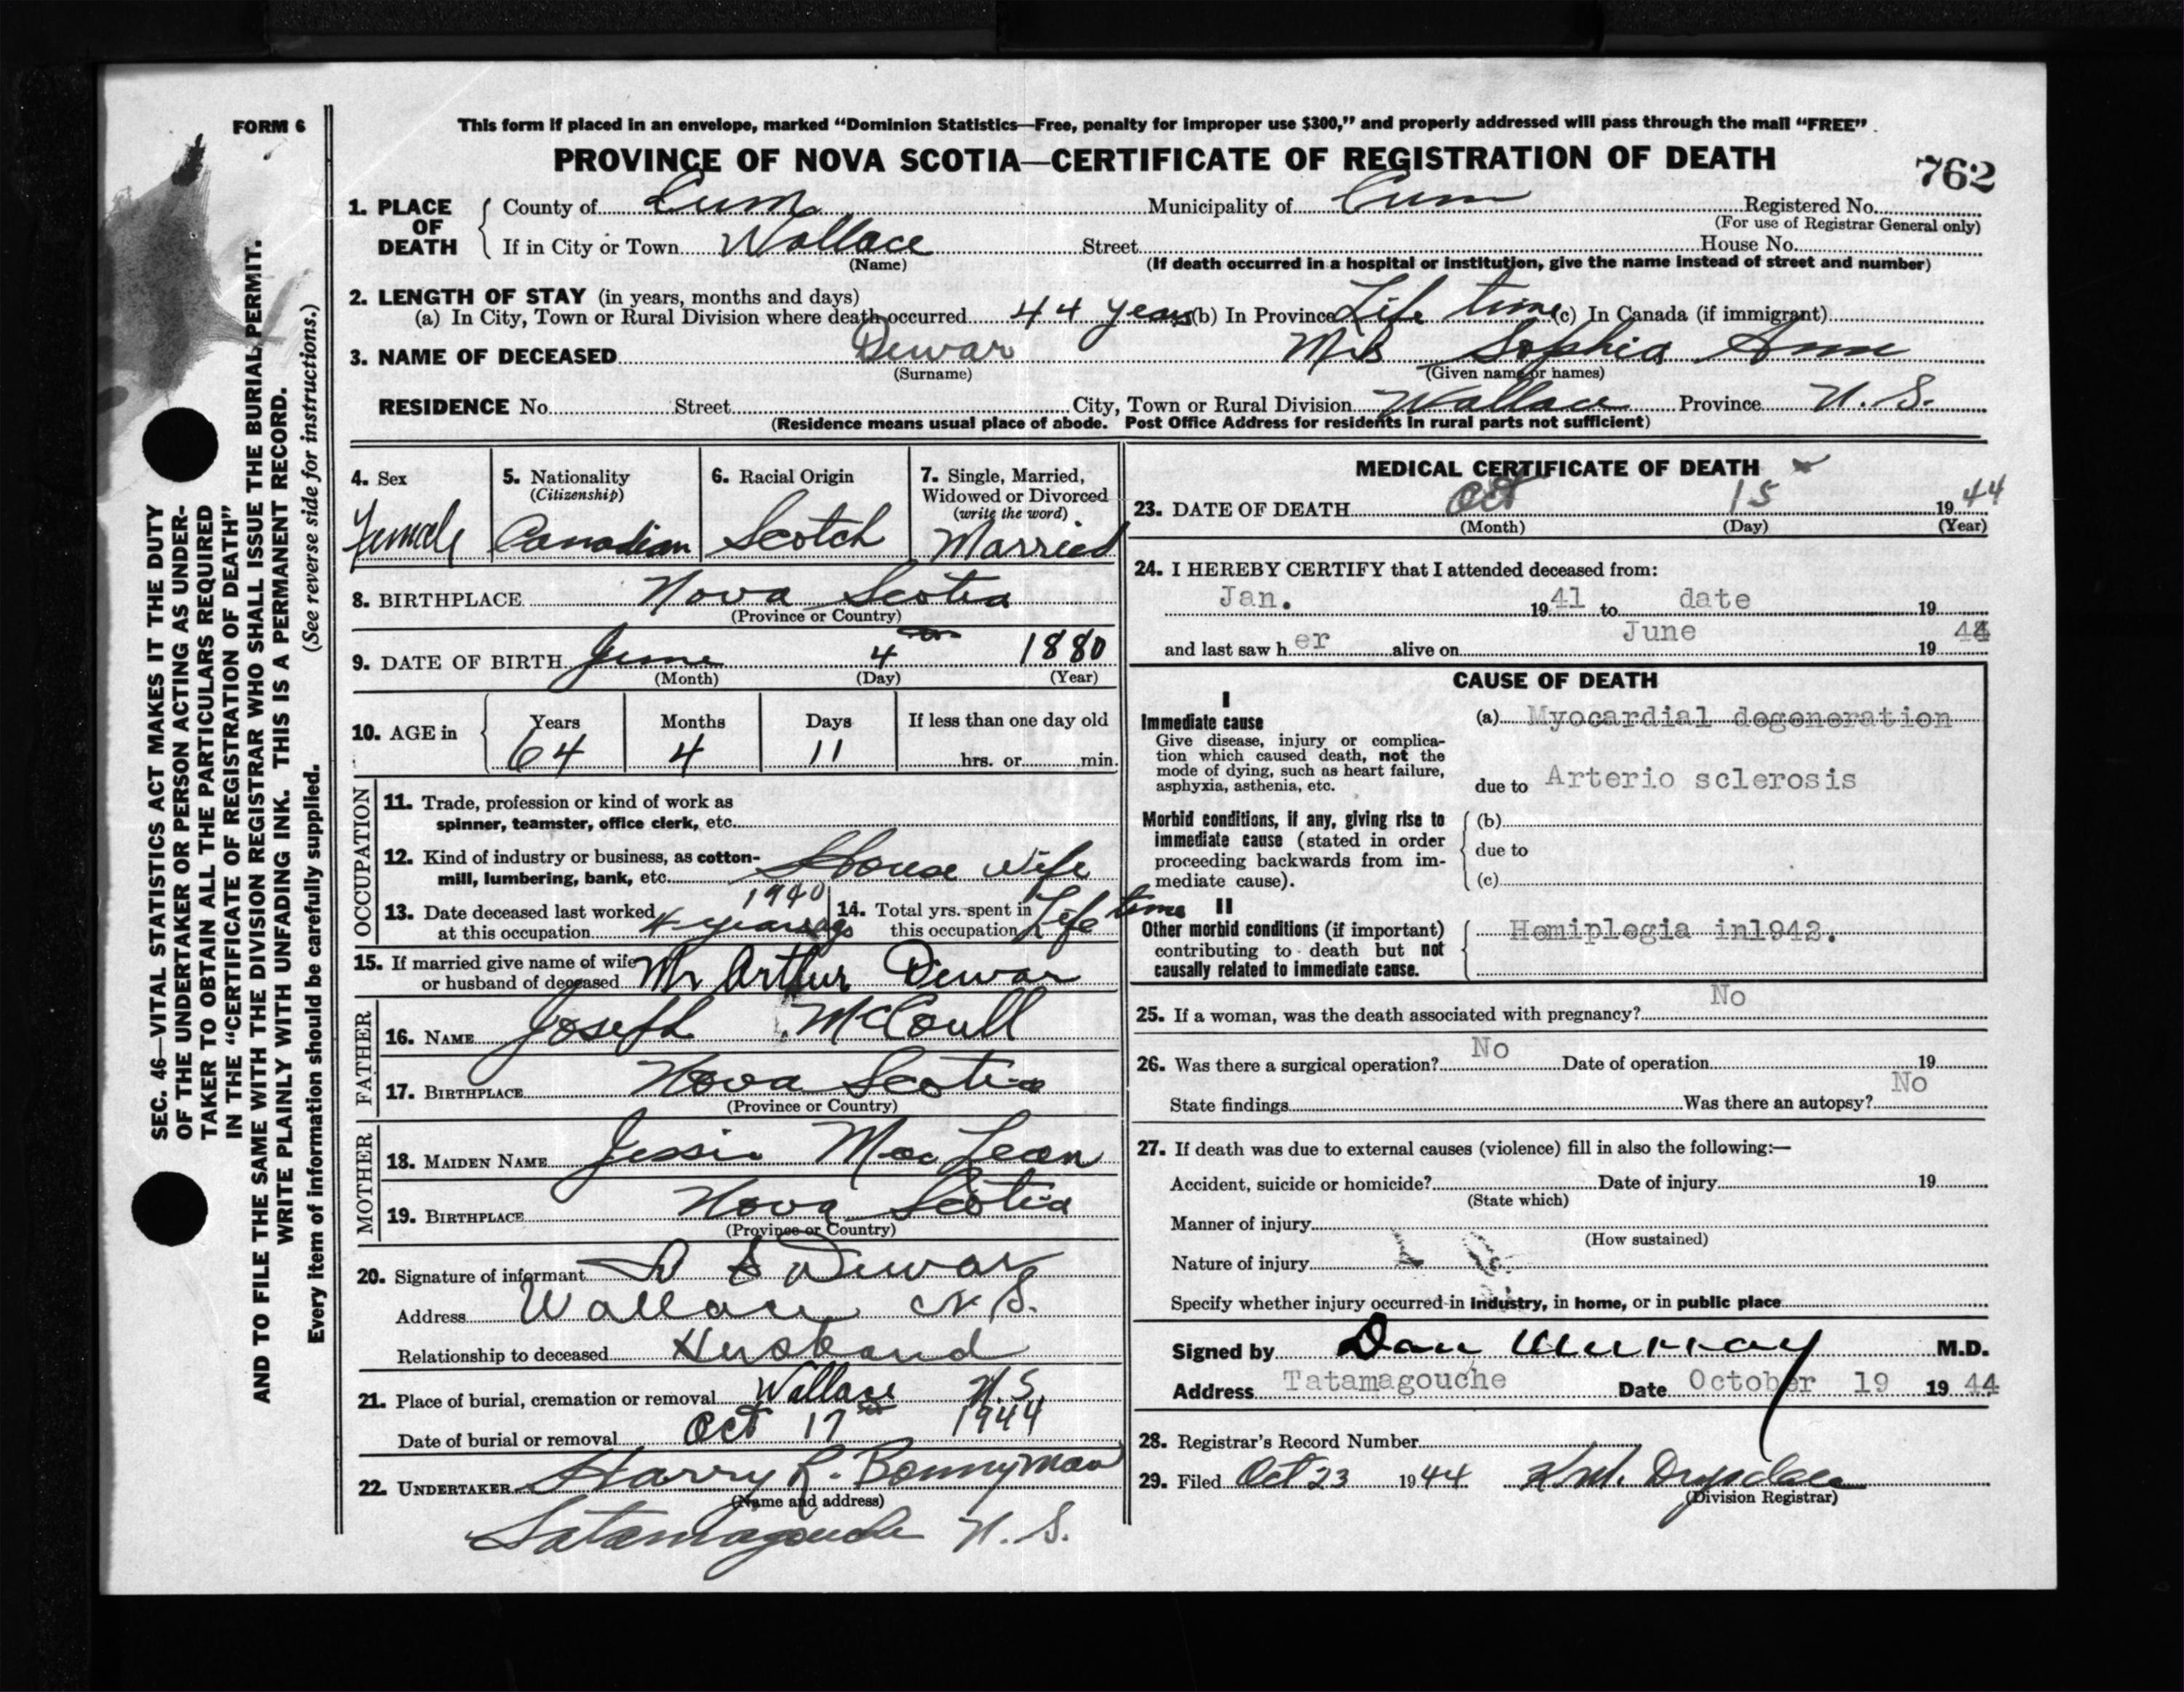 FORM 6
This form if placed in an envelope, marked "Dominion Statistics—Free, penalty for improper use $300," and properly addressed will pass through the mail "FREE"
PROVINCE OF NOVA SCOTIA—CERTIFICATE OF REGISTRATION OF DEATH
762
1. PLACE OF DEATH
County of Cum Municipality of Cum Registered No.
(For use of Registrar General only)
If in City or Town Wallace Street House No.
(Name) (If death occurred in a hospital or institution, give the name instead of street and number)
2. LENGTH OF STAY (in years, months and days)
(a) In City, Town or Rural Division where death occurred 44 years (b) In Province Life time (c) In Canada (if immigrant)
3. NAME OF DECEASED Dewar Mrs Sophia Ann
(Surname) (Given name or names)
RESIDENCE No. Street City, Town or Rural Division Wallace Province N. S.
(Residence means usual place of abode. Post Office Address for residents in rural parts not sufficient)
4. Sex
Female
5. Nationality
(Citizenship)
Canadian
6. Racial Origin
Scotch
7. Single, Married,
Widowed or Divorced
(write the word)
Married
8. BIRTHPLACE Nova Scotia
(Province or Country)
9. DATE OF BIRTH June 4 1880
(Month) (Day) (Year)
10. AGE in
Years Months Days If less than one day old
64 4 11 hrs. or min.
OCCUPATION
11. Trade, profession or kind of work as
spinner, teamster, office clerk, etc.
12. Kind of industry or business, as cotton-
mill, lumbering, bank, etc. House Wife
1940
13. Date deceased last worked
at this occupation 4 years ago
14. Total yrs. spent in
this occupation Life time
15. If married give name of wife
or husband of deceased Mr Arthur Dewar
FATHER
16. NAME Joseph McCoull
17. BIRTHPLACE Nova Scotia
(Province or Country)
MOTHER
18. MAIDEN NAME Jessie MacLean
19. BIRTHPLACE Nova Scotia
(Province or Country)
20. Signature of informant Dewar
Address Wallace N.S.
Relationship to deceased Husband
21. Place of burial, cremation or removal Wallace N.S.
Date of burial or removal Oct 17 1944
22. UNDERTAKER Harry R. Bonnyman
(Name and address)
Tatamagouche N. S.
MEDICAL CERTIFICATE OF DEATH
23. DATE OF DEATH Oct 15 1944
(Month) (Day) (Year)
24. I HEREBY CERTIFY that I attended deceased from:
Jan. 1941 to date 19
and last saw her alive on June 1944
CAUSE OF DEATH
I
Immediate cause
Give disease, injury or complica-
tion which caused death, not the
mode of dying, such as heart failure,
asphyxia, asthenia, etc.
(a) Myocardial degeneration
due to Arterio sclerosis
Morbid conditions, if any, giving rise to
immediate cause (stated in order
proceeding backwards from im-
mediate cause).
(b)
due to
(c)
II
Other morbid conditions (if important)
contributing to death but not
causally related to immediate cause.
Hemiplegia in1942.
25. If a woman, was the death associated with pregnancy? No
26. Was there a surgical operation? No Date of operation 19
State findings Was there an autopsy? No
27. If death was due to external causes (violence) fill in also the following:—
Accident, suicide or homicide? Date of injury 19
(State which)
Manner of injury
(How sustained)
Nature of injury
Specify whether injury occurred in industry, in home, or in public place
Signed by Dan Murray M.D.
Address Tatamagouche Date October 19 1944
28. Registrar's Record Number
29. Filed Oct 23 1944 Drysdale
(Division Registrar)
SEC. 46—VITAL STATISTICS ACT MAKES IT THE DUTY
OF THE UNDERTAKER OR PERSON ACTING AS UNDER-
TAKER TO OBTAIN ALL THE PARTICULARS REQUIRED
IN THE "CERTIFICATE OF REGISTRATION OF DEATH"
AND TO FILE THE SAME WITH THE DIVISION REGISTRAR WHO SHALL ISSUE THE BURIAL PERMIT.
WRITE PLAINLY WITH UNFADING INK. THIS IS A PERMANENT RECORD.
Every item of information should be carefully supplied. (See reverse side for instructions.)